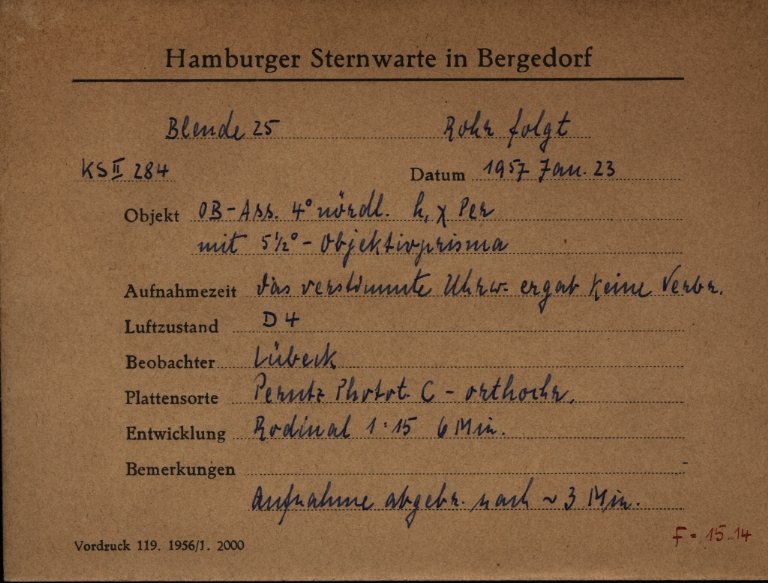 Hamburger Sternwarte in Bergedorf
Blende 25 Rohr folgt
KS II 284 Datum 1957 Jan. 23
Objekt OB-Ass. 4° nördl. h, χ Per
mit 5½° - Objektivprisma
Aufnahmezeit das verstimmte Uhrw. ergab keine Verbr.
Luftzustand D 4
Beobachter Lübeck
Plattensorte Perutz Photot: C - orthochr.
Entwicklung Rodinal 1:15 6 Min.
Bemerkungen
Aufnahme abgebr. nach ~ 3 Min.
Vordruck 119. 1956/1. 2000 F = 15.14